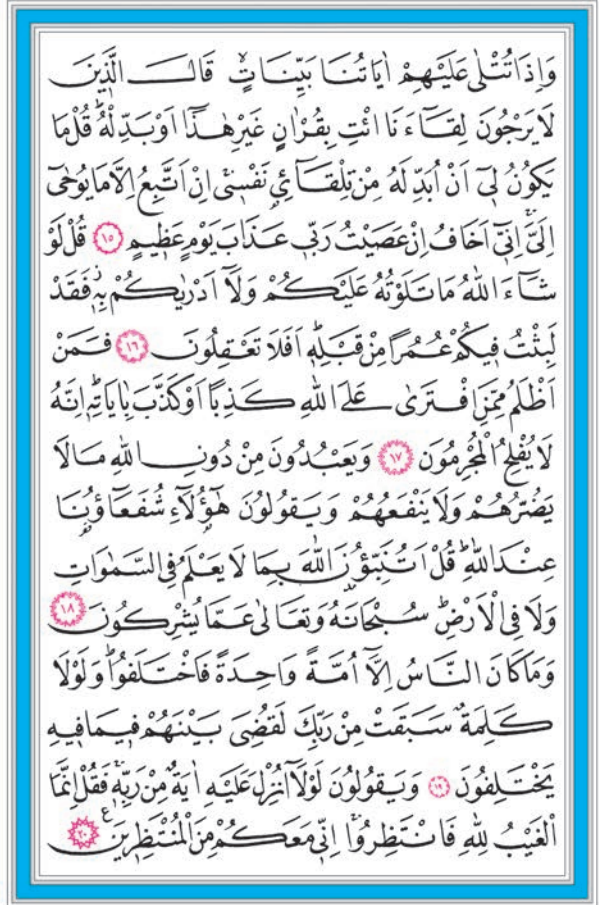 وَاِذَا تُتْلٰى عَلَيْهِمْ اٰيَاتُنَا بَيِّنَاتٍۙ قَالَ الَّذٖينَ
لَا يَرْجُونَ لِقَٓاءَنَا ائْتِ بِقُرْاٰنٍ غَيْرِ هٰذَٓا اَوْ بَدِّلْهُؕ قُلْ مَا
يَكُونُ لٖٓى اَنْ اُبَدِّلَهُ مِنْ تِلْقَٓائِ۬ نَفْسٖىۚ اِنْ اَتَّبِعُ اِلَّا مَا يُوحٰٓى
اِلَىَّۚ اِنّٖٓى اَخَافُ اِنْ عَصَيْتُ رَبّٖى عَذَابَ يَوْمٍ عَظٖيمٍ ﴿١٥﴾ قُلْ لَوْ
شَٓاءَ اللّٰهُ مَا تَلَوْتُهُ عَلَيْكُمْ وَلَٓا اَدْرٰيكُمْ بِهٖؗ فَقَدْ
لَبِثْتُ فٖيكُمْ عُمُرًا مِنْ قَبْلِهٖؕ اَفَلَا تَعْقِلُونَ ﴿١٦﴾ فَمَنْ
اَظْلَمُ مِمَّنِ افْتَرٰى عَلَى اللّٰهِ كَذِبًا اَوْ كَذَّبَ بِاٰيَاتِهٖؕ اِنَّهُ
لَا يُفْلِحُ الْمُجْرِمُونَ ﴿١٧﴾ وَيَعْبُدُونَ مِنْ دُونِ اللّٰهِ مَا لَا
يَضُرُّهُمْ وَلَا يَنْفَعُهُمْ وَيَقُولُونَ هٰٓؤُ۬لَٓاءِ شُفَعَٓاؤُ۬نَا
عِنْدَ اللّٰهِؕ قُلْ اَتُنَبِّؤُ۫نَ اللّٰهَ بِمَا لَا يَعْلَمُ فِى السَّمٰوَاتِ
وَلَا فِى الْاَرْضِؕ سُبْحَانَهُ وَتَعَالٰى عَمَّا يُشْرِكُونَ ﴿١٨﴾
وَمَا كَانَ النَّاسُ اِلَّٓا اُمَّةً وَاحِدَةً فَاخْتَلَفُواؕ وَلَوْلَا
كَلِمَةٌ سَبَقَتْ مِنْ رَبِّكَ لَقُضِىَ بَيْنَهُمْ فٖيمَا فٖيهِ
يَخْتَلِفُونَ ﴿١٩﴾ وَيَقُولُونَ لَوْلَٓا اُنْزِلَ عَلَيْهِ اٰيَةٌ مِنْ رَبِّهٖۚ فَقُلْ اِنَّمَا
الْغَيْبُ لِلّٰهِ فَانْتَظِرُواۚ اِنّٖى مَعَكُمْ مِنَ الْمُنْتَظِرٖينَ ﴿٢٠﴾ ع